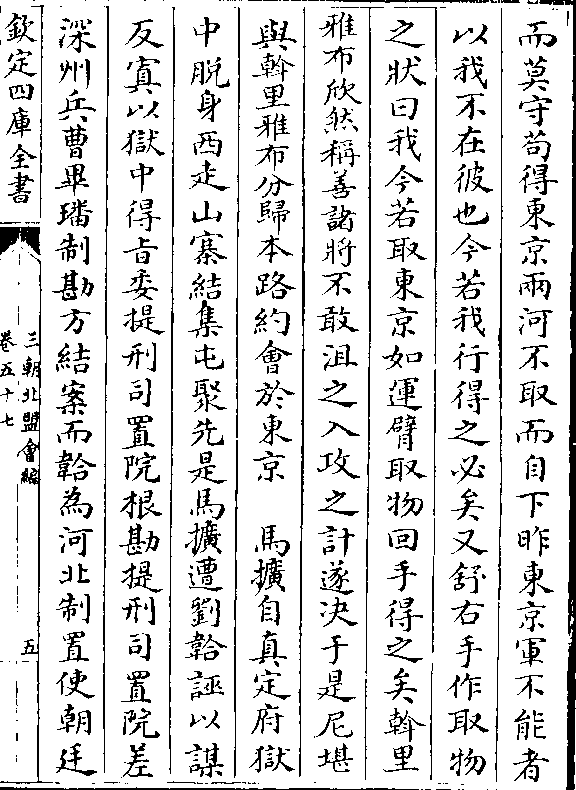 而莫守苟得東京兩河不取而自下昨東京軍不能者
以我不在彼也今若我行得之必矣又舒右手作取物
之狀曰我今若取東京如運臂取物回手得之矣斡里
雅布欣然稱善諸將不敢沮之入攻之計遂决于是尼堪
與斡里雅布分歸本路約會於東京　馬擴自真定府獄
中脱身西走山寨結集屯聚先是馬擴遭劉韐誣以謀
反寘以獄中得㫖委提刑司置院根勘提刑司置院差
深州兵曹畢璠制勘方結案而韐為河北制置使朝廷
欽定四庫全書
三朝北盟會編
卷五十七
五